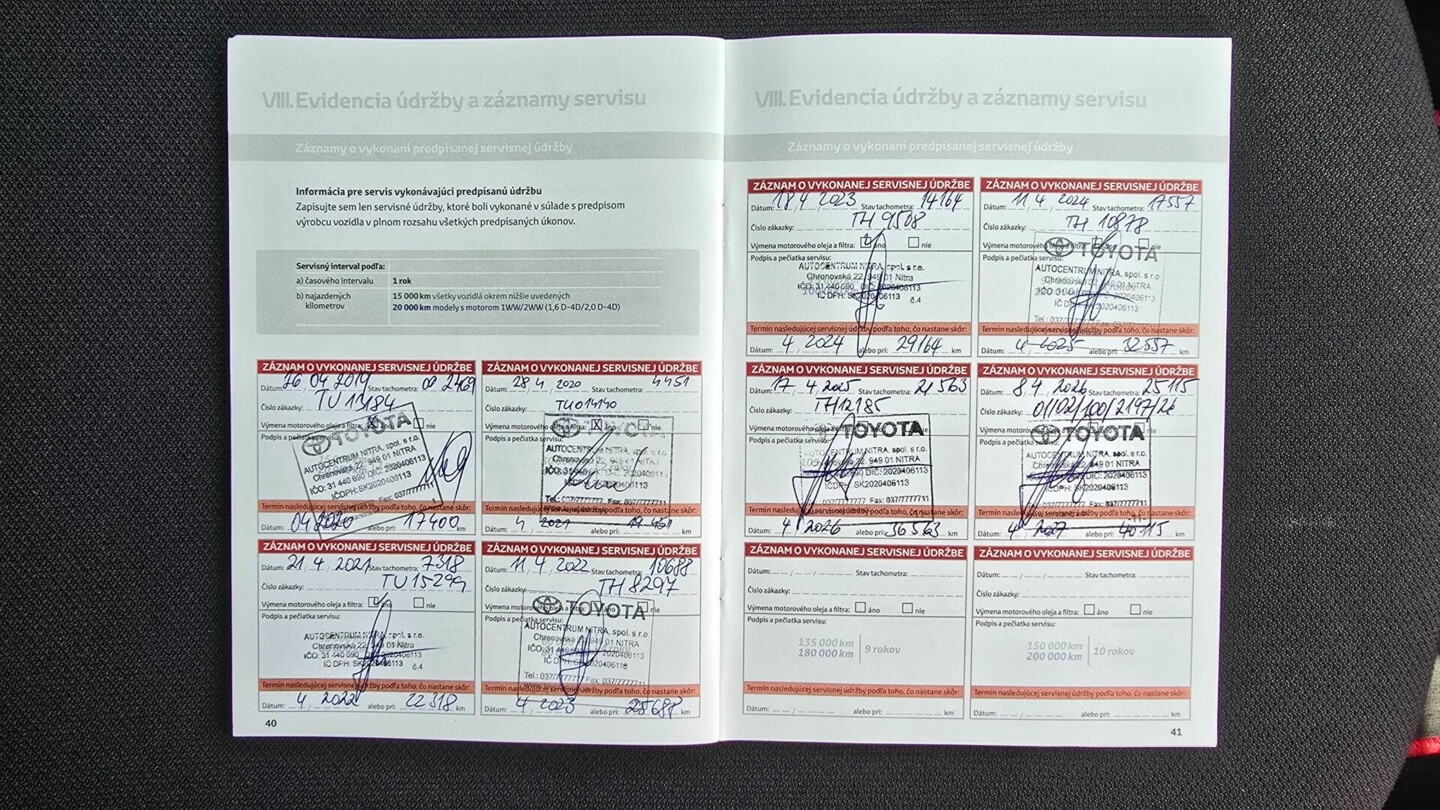 VIII. Evidencia údržby a záznamy servisu
Záznamy o vykonaní predpísanej servisnej údržby
Informácia pre servis vykonávajúci predpísanú údržbu
Zapisujte sem len servisné údržby, ktoré boli vykonané v súlade s predpisom
výrobcu vozidla v plnom rozsahu všetkých predpísaných úkonov.
Servisný interval podľa:
a) časového intervalu 1 rok
b) najazdených kilometrov 15 000 km všetky vozidlá okrem nižšie uvedených
20 000 km modely s motorom 1WW/2WW (1,6 D-4D/2,0 D-4D)
ZÁZNAM O VYKONANEJ SERVISNEJ ÚDRŽBE
Dátum: 26 04 2019 Stav tachometra: 2469
Číslo zákazky:
Výmena motorového oleja a filtra: X
Podpis a pečiatka
TOYOTA
AUTOCENTRUM NITRA, spol. s r.o.
Chrenovská 22, 949 01 NITRA
IČO: 31 440 690 DIČ: 2020406113
IČDPH: SK2020406113
Termín nasledujúcej servisnej údržby podľa toho, čo nastane skôr:
Dátum: 04 2020 alebo pri: 17400
ZÁZNAM O VYKONANEJ SERVISNEJ ÚDRŽBE
Dátum: 28 4 2020 Stav tachometra: 4451
Číslo zákazky: TU014140
Výmena motorového oleja a filtra: X áno nie
Podpis a pečiatka servisu:
TOYOTA
AUTOCENTRUM NITRA, spol. s r.o.
Chrenovská 22, 949 01 NITRA
Tel.: 037/7777777 Fax: 037/7777711
Termín nasledujúcej servisnej údržby podľa toho, čo nastane skôr:
Dátum: 4 2021 alebo pri: 19 451 km
ZÁZNAM O VYKONANEJ SERVISNEJ ÚDRŽBE
Dátum: 21. 4. 2021 Stav tachometra: 7318
Číslo zákazky: TU 15299
Výmena motorového oleja a filtra: áno nie
Podpis a pečiatka servisu:
AUTOCENTRUM NITRA, spol. s r.o.
Chrenovská 22, 949 01 Nitra
IČO: 31 440 690 DIČ: 2020406113
IČ DPH: SK2020406113 č.4
Termín nasledujúcej servisnej údržby podľa toho, čo nastane skôr:
Dátum: 4 2022 alebo pri: 22 318 km
ZÁZNAM O VYKONANEJ SERVISNEJ ÚDRŽBE
Dátum: 11. 4. 2022 Stav tachometra: 10688
Číslo zákazky: TH 8297
Výmena motorového oleja a filtra: nie
Podpis a pečiatka servisu:
TOYOTA
AUTOCENTRUM NITRA, spol. s r.o.
Chrenovská 22, 949 01 NITRA
IČ DPH: SK2020406113
Tel.: 037/7777777 Fax: 037/7777711
Termín nasledujúcej servisnej údržby podľa toho, čo nastane skôr:
Dátum: 4 2023 alebo pri: 25688 km
40
VIII. Evidencia údržby a záznamy servisu
Záznamy o vykonaní predpísanej servisnej údržby
ZÁZNAM O VYKONANEJ SERVISNEJ ÚDRŽBE
Dátum: 18 4 2023 Stav tachometra: 14164
Číslo zákazky: TH 9508
Výmena motorového oleja a filtra: áno nie
Podpis a pečiatka servisu:
AUTOCENTRUM NITRA, spol. s r.o.
Chrenovská 22, 949 01 Nitra
IČO: 31 440 690 DIČ: 2020406113
IČ DPH: SK2020406113 č.4
Termín nasledujúcej servisnej údržby podľa toho, čo nastane skôr:
Dátum: 4 2024 alebo pri: 29164 km
ZÁZNAM O VYKONANEJ SERVISNEJ ÚDRŽBE
Dátum: 11. 4 2024 Stav tachometra: 17557
Číslo zákazky: TH 10878
Výmena motorového oleja a filtra: nie
Podpis a pečiatka servisu:
TOYOTA
AUTOCENTRUM NITRA, spol. s r.o.
Chrenovská 22, 949 01 NITRA
Termín nasledujúcej servisnej údržby podľa toho, čo nastane skôr:
Dátum: 4 2025 alebo pri: 32557 km
ZÁZNAM O VYKONANEJ SERVISNEJ ÚDRŽBE
Dátum: 17 4. 2025 Stav tachometra: 21 563
Číslo zákazky: TH12185
Výmena motorového oleja a filtra:
Podpis a pečiatka servisu:
TOYOTA
AUTOCENTRUM NITRA, spol. s r.o.
Chrenovská 22, 949 01 NITRA
DIČ: 2020406113
IČDPH: SK2020406113
Fax: 037/7777711
Termín nasledujúcej servisnej údržby podľa toho, čo nastane skôr:
Dátum: 4 2026 alebo pri: 36563 km
ZÁZNAM O VYKONANEJ SERVISNEJ ÚDRŽBE
Dátum: 8 4 2026 Stav tachometra: 25115
Číslo zákazky: 01/102/100/2197/26
Výmena motorového oleja a filtra:
Podpis a pečiatka servisu:
TOYOTA
AUTOCENTRUM NITRA, spol. s r.o.
Chrenovská 22, 949 01 NITRA
IČDPH: SK2020406113
Fax: 037/7777711
Termín nasledujúcej servisnej údržby podľa toho, čo nastane skôr:
Dátum: 4 2027 alebo pri: 40115 km
ZÁZNAM O VYKONANEJ SERVISNEJ ÚDRŽBE
Dátum: Stav tachometra:
Číslo zákazky:
Výmena motorového oleja a filtra: áno nie
Podpis a pečiatka servisu:
135 000 km
180 000 km
9 rokov
Termín nasledujúcej servisnej údržby podľa toho, čo nastane skôr:
Dátum: alebo pri: km
ZÁZNAM O VYKONANEJ SERVISNEJ ÚDRŽBE
Dátum: Stav tachometra:
Číslo zákazky:
Výmena motorového oleja a filtra: áno nie
Podpis a pečiatka servisu:
150 000 km
200 000 km
10 rokov
Termín nasledujúcej servisnej údržby podľa toho, čo nastane skôr:
Dátum: alebo pri: km
41